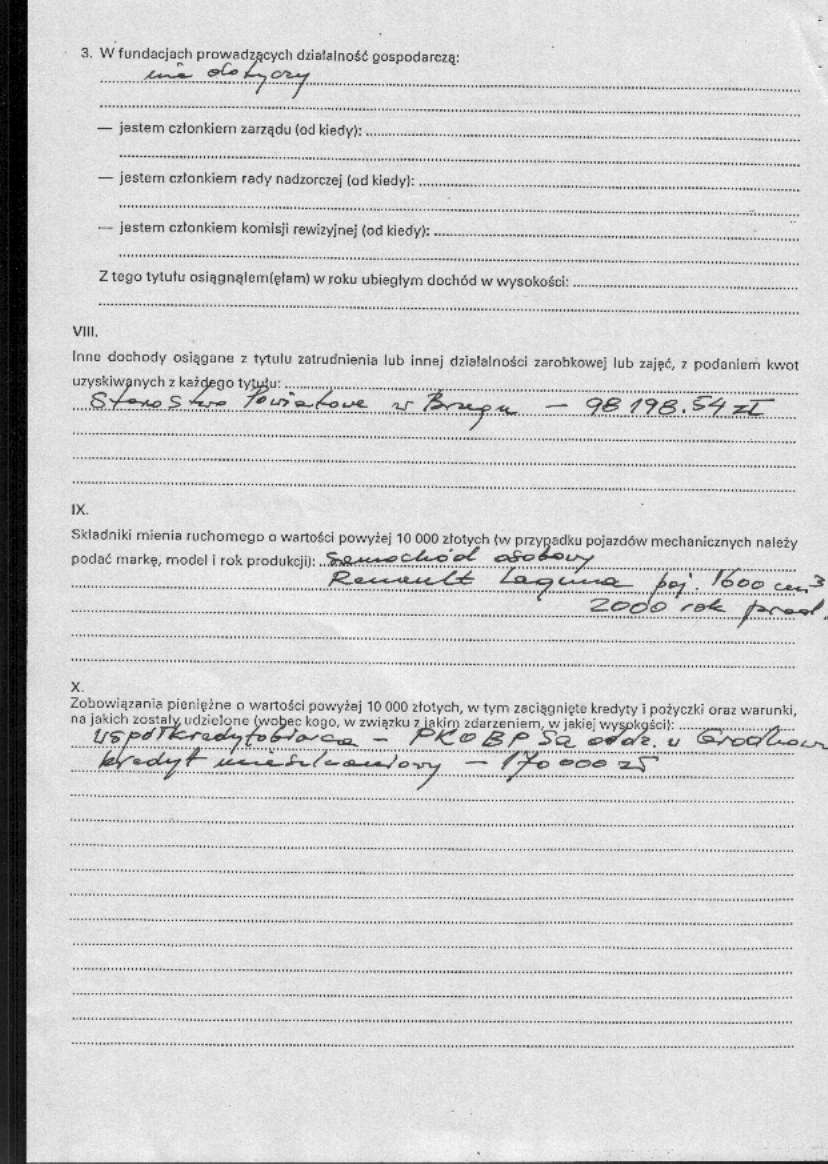 3. W fundacjach prowadzących działalność gospodarczą:
nie dotyczy
— jestem członkiem zarządu (od kiedy):
— jestem członkiem rady nadzorczej (od kiedy):
— jestem członkiem komisji rewizyjnej (od kiedy):
Z tego tytułu osiągnąłem(ęłam) w roku ubiegłym dochód w wysokości:
VIII.
Inne dochody osiągane z tytułu zatrudnienia lub innej działalności zarobkowej lub zajęć, z podaniem kwot
uzyskiwanych z każdego tytułu:
Starostwo Powiatowe w Brzegu — 98 198.54 zł
IX.
Składniki mienia ruchomego o wartości powyżej 10 000 złotych (w przypadku pojazdów mechanicznych należy
podać markę, model i rok produkcji): Samochód osobowy
Renault Laguna poj. 1600 cm3
2000 rok prod.
X.
Zobowiązania pieniężne o wartości powyżej 10 000 złotych, w tym zaciągnięte kredyty i pożyczki oraz warunki,
na jakich zostały udzielone (wobec kogo, w związku z jakim zdarzeniem, w jakiej wysokości):
współkredytobiorca – PKO BP SA oddz. w Grodkowie
kredyt mieszkaniowy — 170 000 zł